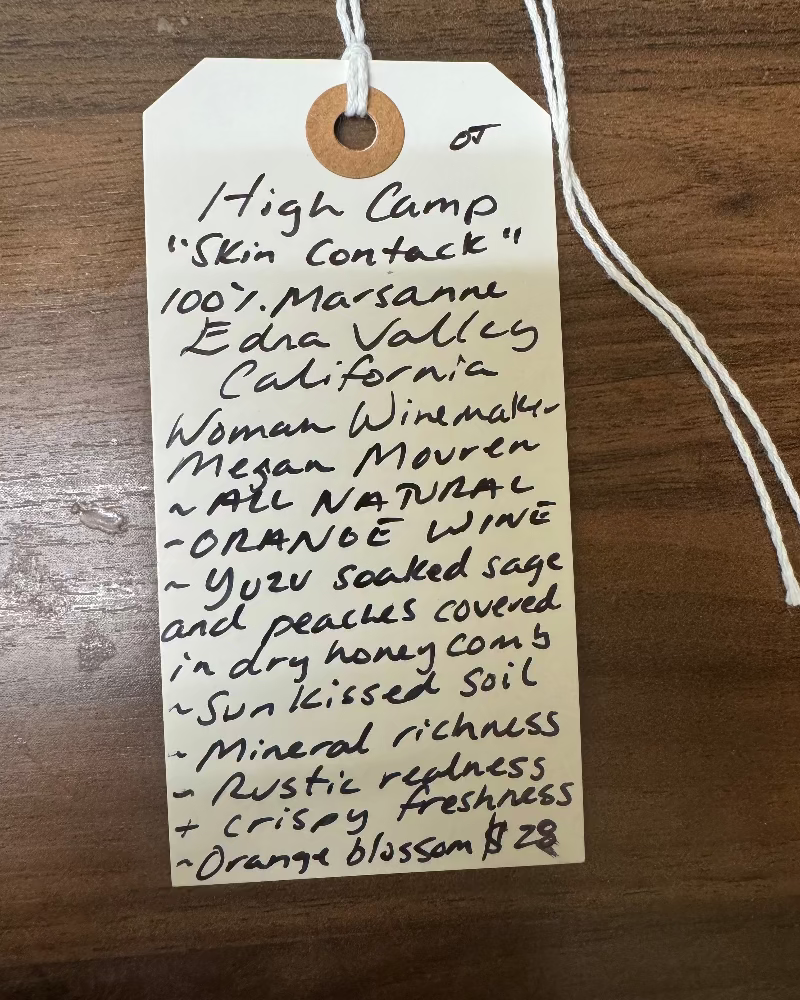 OJ
High Camp
"Skin Contack"
100%. Marsanne
Edna Valley
California
Woman Winemaker
Megan Mouren
~ ALL NATURAL
~ ORANGE WINE
~ Yuzu soaked sage
and peaches covered
in dry honey comb
~ Sun kissed soil
~ Mineral richness
~ Rustic realness
+ crispy freshness
~ Orange blossom $28